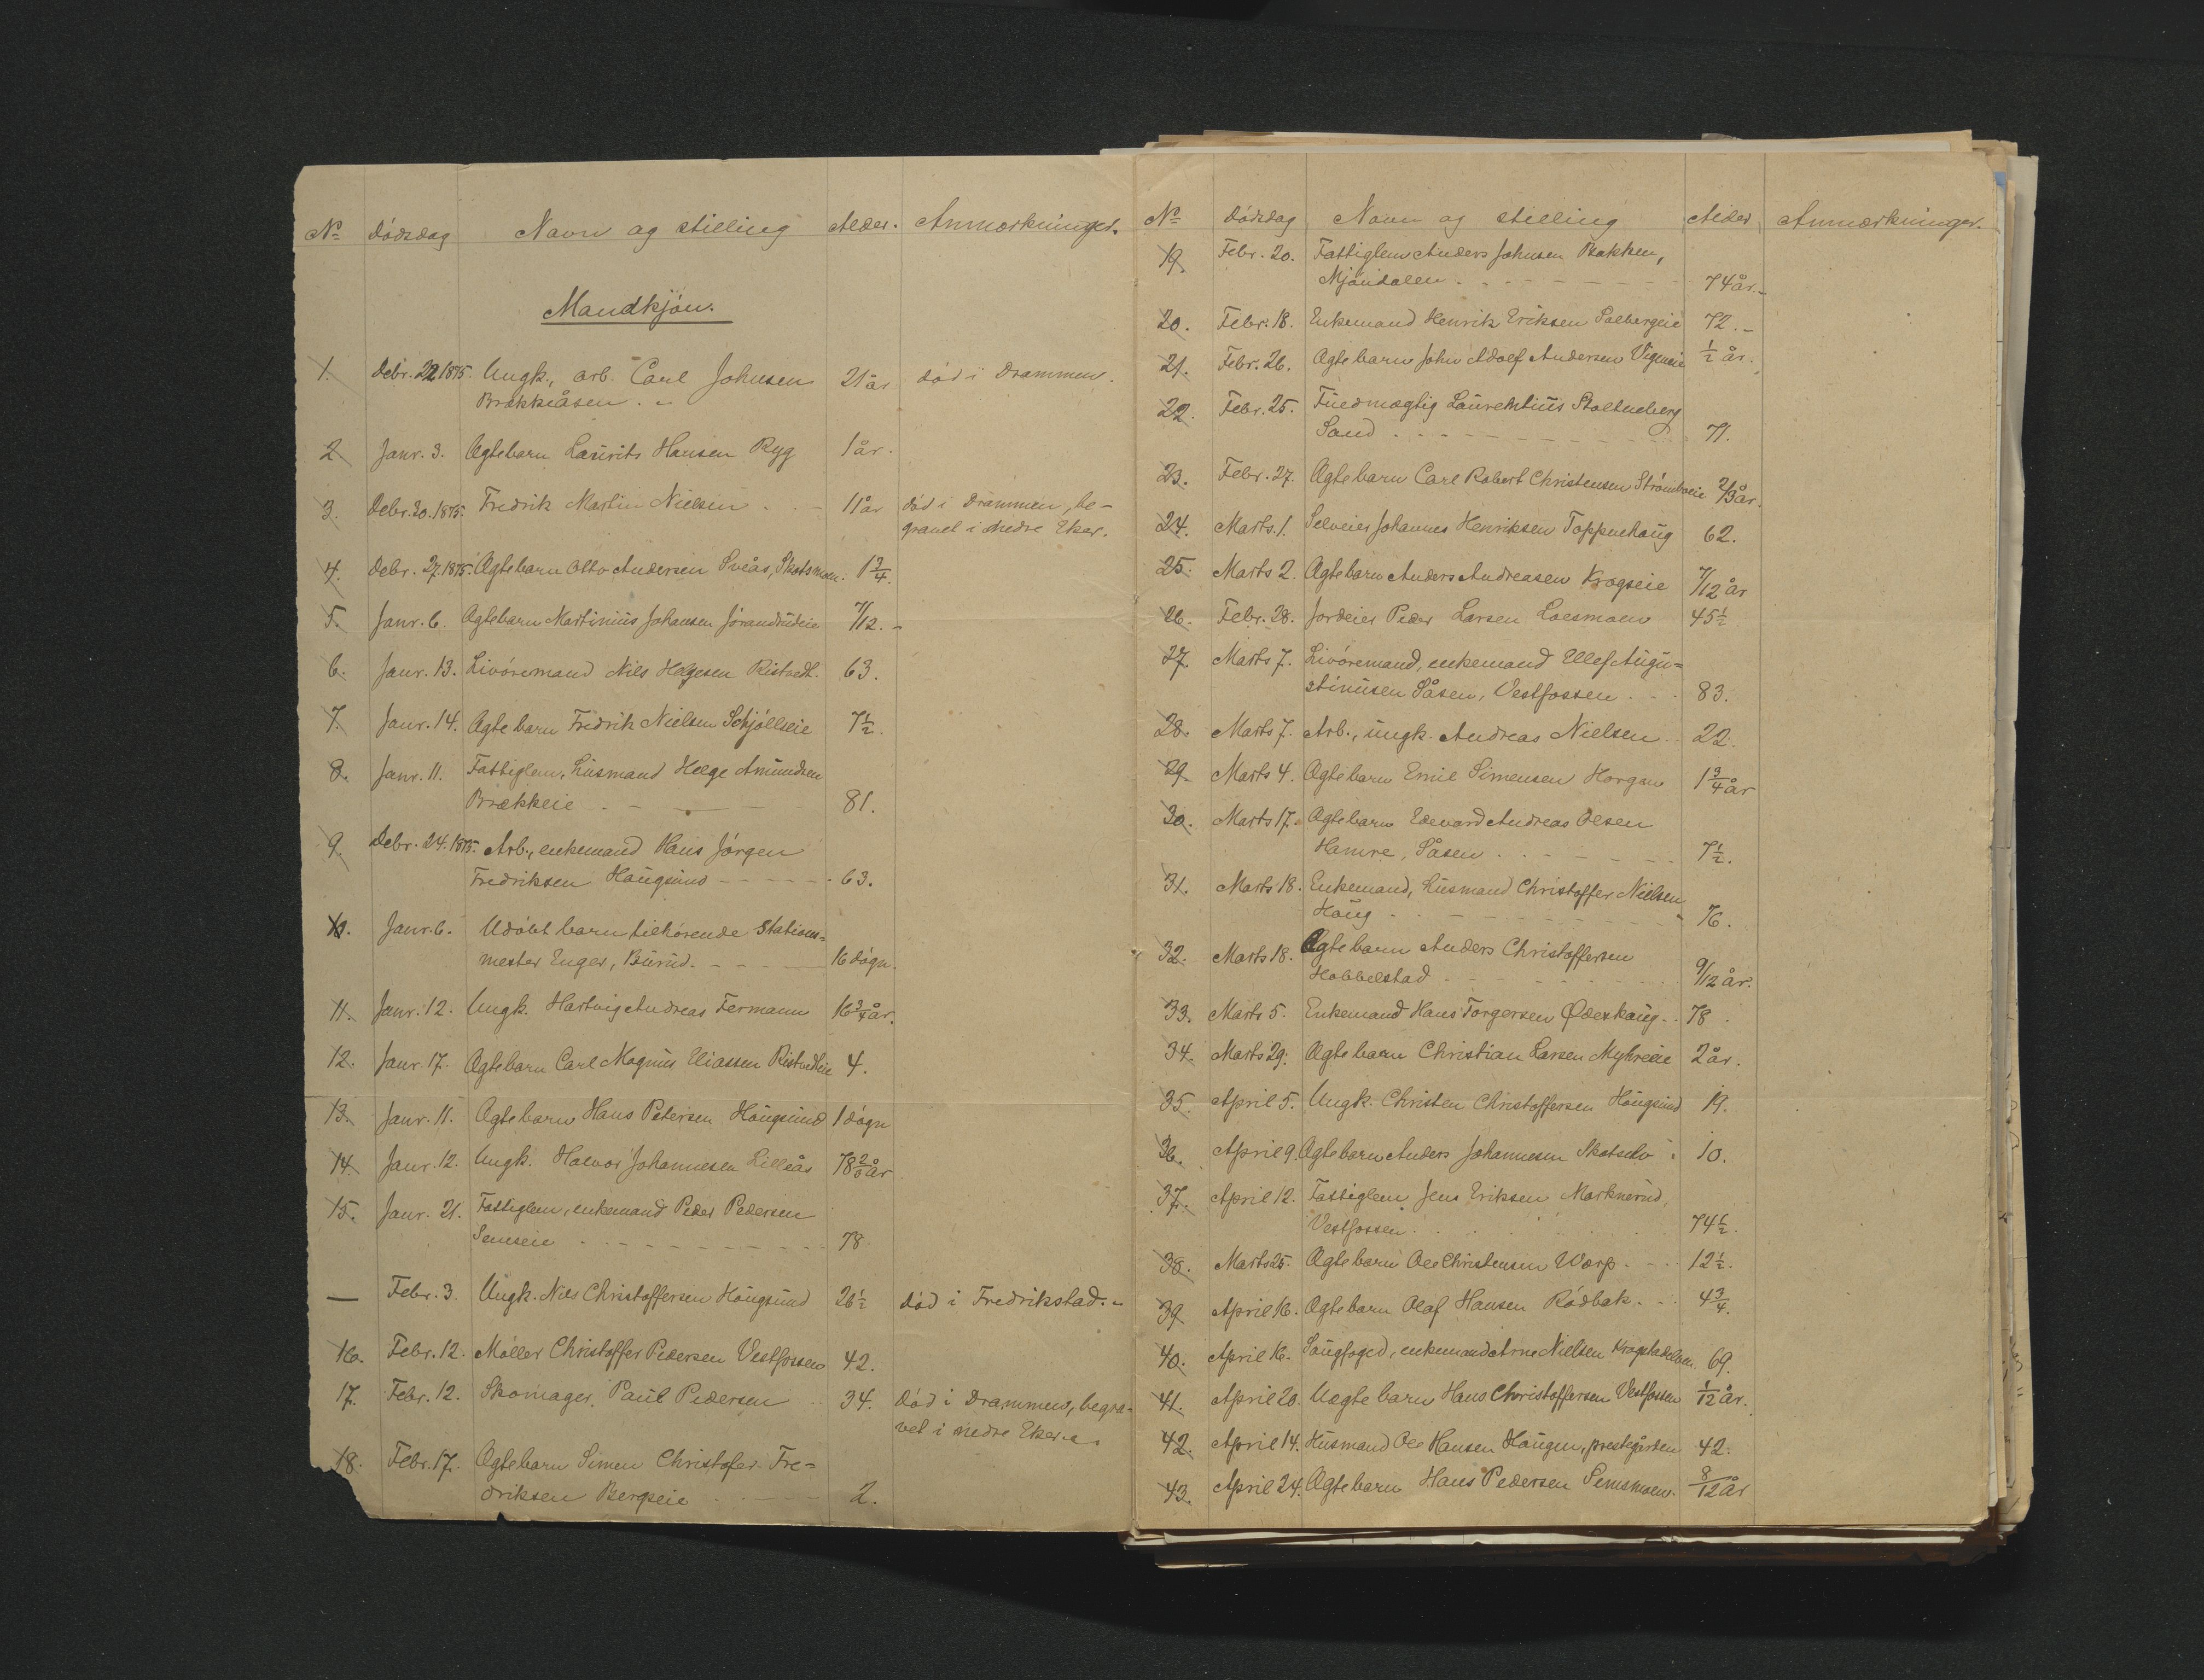 No Dödsdag Navn og stilling Alder. Anmærkninger.
Mandkjön.
1. Debr. 22 1875. Ungk., arb. Carl Johnsen 21 år död i Drammen.
Brækkeåsen. "
2 Janr. 3. Ægtebarn Laurits Hansen Ryg 1 år.
3. Debr. 20. 1875. Fredrik Martin Nielsen . . - 11 år död i Drammen, be-
gravet i nedre Eker.
4. Debr. 27. 1875. Ægtebarn Otto Andersen Sveås, Skotsmoen. 1 3/4.
5. Janr. 6. Ægtebarn Martinius Johansen Jörandrudeie 7/12. -
6. Janr. 13. Livöremand Nils Helgesen Ristvedt. 63.
7. Janr. 14. Ægtebarn Fredrik Nielsen Schjölleie 7 1/2.
8. Janr. 11. Fattiglem, husmand Helge Amundsen
Brækkeie - - - - 81.
9. Debr. 24. 1875. Arb., enkemand Hans Jörgen
Fredriksen Haugsund - - - - - 63.
10. Janr. 6. Udöbt barn tilhörende Stations=
mester Enger, Burud. - - - 16 dögn.
11. Janr. 12. Ungk. Hartvig Andreas Fermann 16 3/4 år.
12. Janr. 17. Ægtebarn Carl Magnus Eliassen Ristvedteie 4.
13. Janr. 11. Ægtebarn Hans Petersen Haugsund 1 dögn
14. Janr. 12. Ungk. Halvor Johannesen Lilleås 78 år
15. Janr. 21. Fattiglem, enkemand Peder Pedersen
Semseie - - - - - - - - 78
— Febr. 3. Ungk. Nils Christoffersen Haugsund 26 1/2 död i Fredrikstad. "
16. Febr. 12. Möller Christoffer Pedersen Vestfossen 42.
17. Febr. 12. Skomager, Paul Pedersen 34. Död i Drammen, begra-
vet i nedre Eker.
18. Febr. 17. Ægtebarn Simen Christofer Fre=
driksen Bergseie - - - - 2.
No Dödsdag Navn og stilling Alder Anmærkninger.
19. Febr. 20. Fattiglem Anders Johnsen Bakken,
Mjöndalen . - - - - - - - 74 år. -
20. Febr. 18. Enkemand Henrik Eriksen Solbergeie 72. -
21. Febr. 26. Ægtebarn John Adolf Andersen Vigeneie 1/2 år.
22. Febr. 25. Fuldmægtig Laurentius Stoltenberg
Sand . - - - - - - - 71.
23. Febr. 27. Ægtebarn Carl Robert Christensen Strömboeie 2/3 år.
24. Marts. 1. Selveier Johannes Henriksen Toppenhaug 62.
25. Marts 2. Ægtebarn Anders Andreasen Krogseie 7/12 år
26. Febr. 28. Jordeier Peder Larsen Loesmoen 45 1/2
27. Marts 7. Livöremand, enkemand Ellef Augu=
stinusen Såsen, Vestfossen . - - 83.
28. Marts 7. Arb., ungk. Andreas Nielsen . . 22.
29. Marts 4. Ægtebarn Emil Simensen Horgen 1 3/4 år
30. Marts 17. Ægtebarn Edevard Andreas Olsen
Hamre, Såsen . . - - - - - 7 1/2.
31. Marts 18. Enkemand, husmand Christoffer Nielsen
Haug . - - - - - - - 76.
32. Marts 18. Ægtebarn Anders Christoffersen
Hobbelstad . - - - - - - 9/12 år.
33. Marts 5. Enkemand Hans Torgersen Ødeskaug . . 78.
34. Marts 29. Ægtebarn Christian Larsen Myhreeie 2 år.
35. April 5. Ungk. Christen Christoffersen Haugsund 19.
36. April 9. Ægtebarn Anders Johannesen Skotselv . 10.
37. April 12. Fattiglem Jens Eriksen Marknerud,
Vestfossen . . . . . . . 74 1/2.
38. Marts 25. Ægtebarn Ole Christensen Worp. - . . 12 1/2.
39. April 16. Ægtebarn Olaf Hansen Rödbak. . . 4 3/4.
40. April 16. Saugfoged, enkemand Arne Nielsen Krogstadelven 69.
41. April 20. Uægte barn Hans Christoffersen Vestfossen 1/12 år.
42. April 14. Husmand Ole Hansen Haugen, prestegården 42.
43. April 24. Ægtebarn Hans Pedersen Semsmoen. 8/12 år